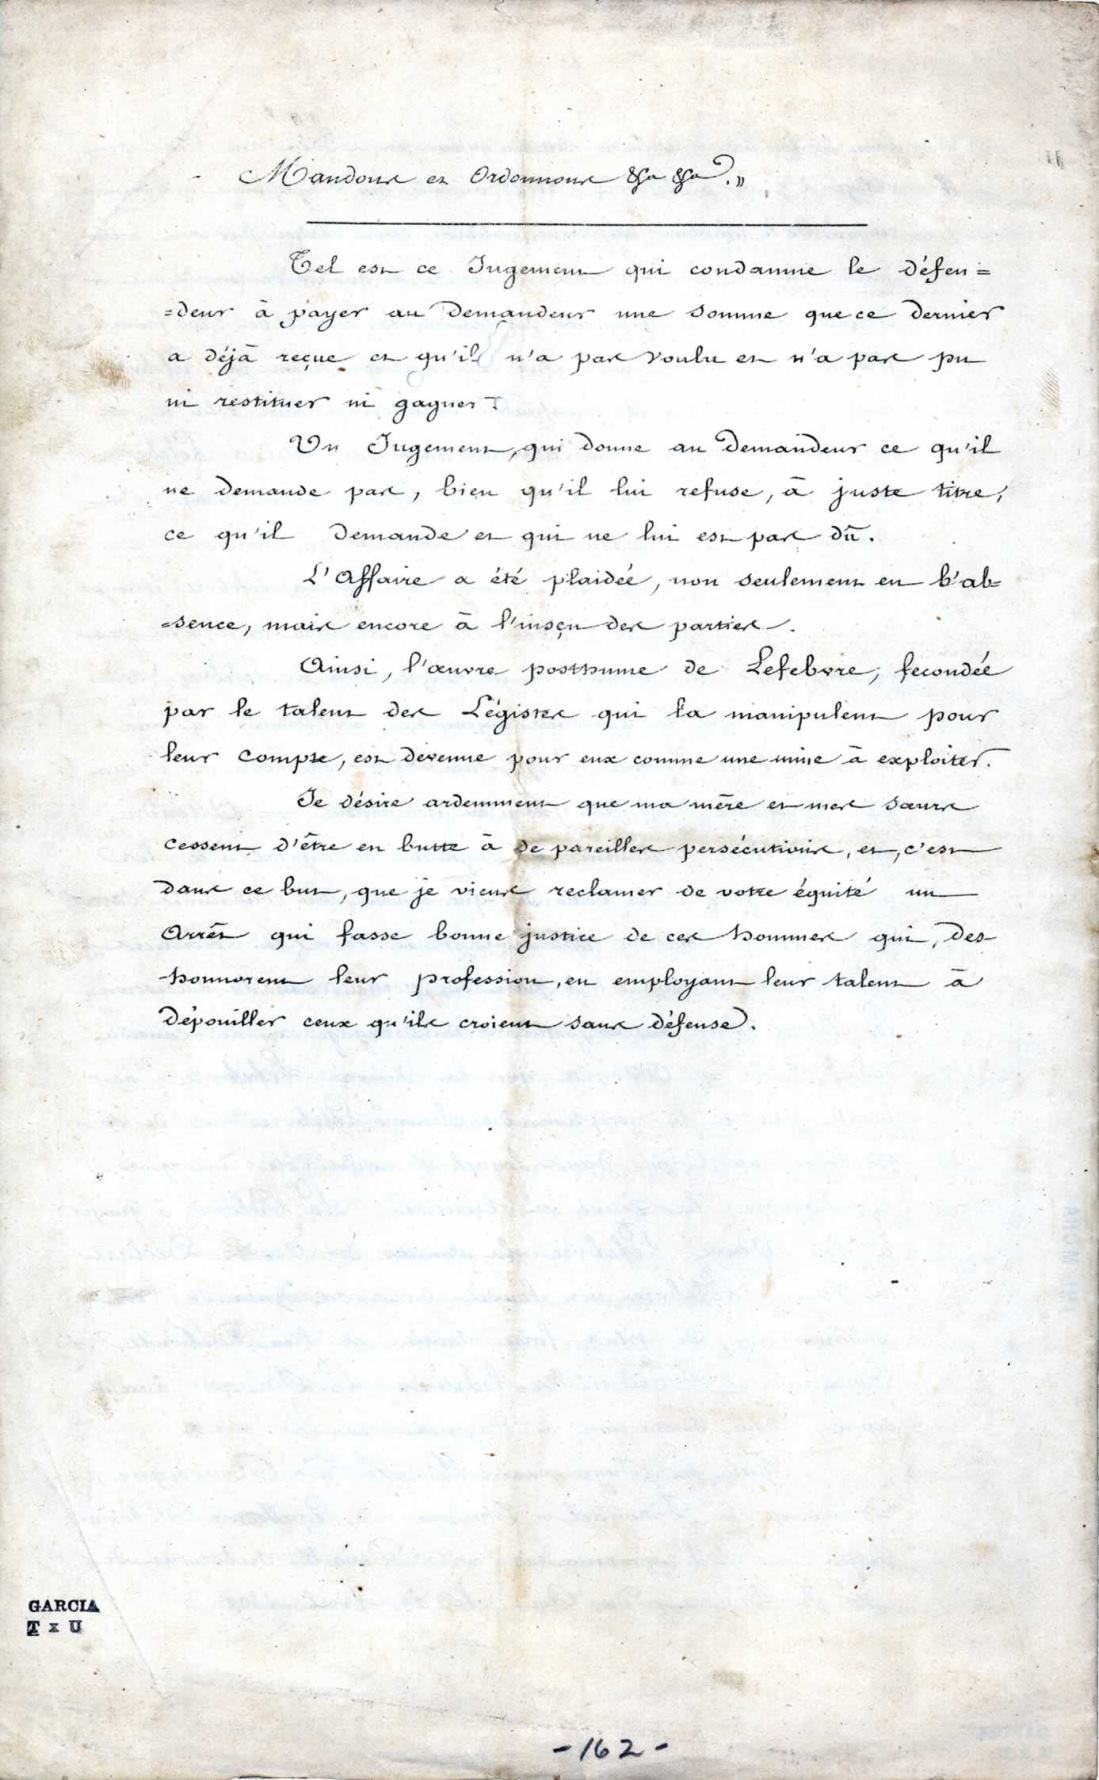 Mandons et Ordonnons &a &a.»
Tel est ce Jugement qui condamne le défen=
=deur à payer au Demandeur une somme que ce dernier
a déjà reçue et qu'il n'a pas voulu et n'a pas pu
ni restituer ni gagner !
Un Jugement, qui donne au Demandeur ce qu'il
ne demande pas, bien qu'il lui refuse, à juste titre,
ce qu'il demande et qui ne lui est pas dû.
L'Affaire a été plaidée, non seulement en l'ab=
=sence, mais encore à l'insçu des parties.
Ainsi, l'œuvre posthume de Lefebvre, fecondée
par le talent des Légistes qui la manipulent pour
leur compte, est devenue pour eux comme une mine à exploiter.
Je désire ardemment que ma mère et mes sœurs
cessent d'être en butte à de pareilles persécutions, et, c'est
dans ce but, que je viens reclamer de votre équité un
Arrêt qui fasse bonne justice de ces hommes qui, des-
honnorent leur profession, en employant leur talent à
dépouiller ceux qu'ils croient sans défense.
GARCIA
T x U
-162-